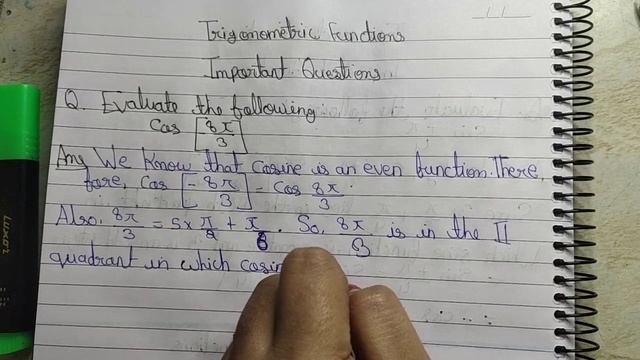 Trigonometric Functions
Important Questions.
Q. Evaluate the following
Cos [8π/3]
Ans We know that cosine is an even function. There
fore, Cos [-8π/3] = Cos 8π/3.
Also, 8π/3 = 5x π/2 + π/6. So, 8π/3 is in the II
quadrant in which cosin
LUXOR